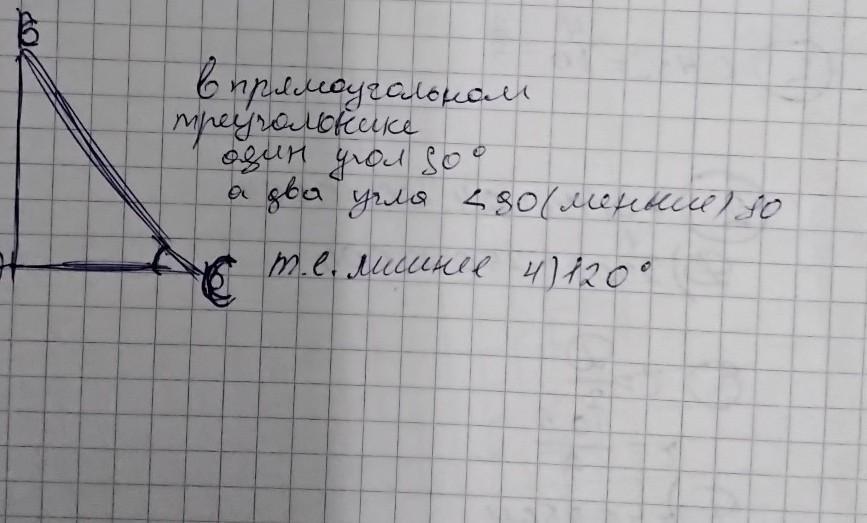 В
в прямоугольном
треугольнике
один угол 90°
а два угла < 90 (меньше) 90
С
т.е. лишнее 4) 120°